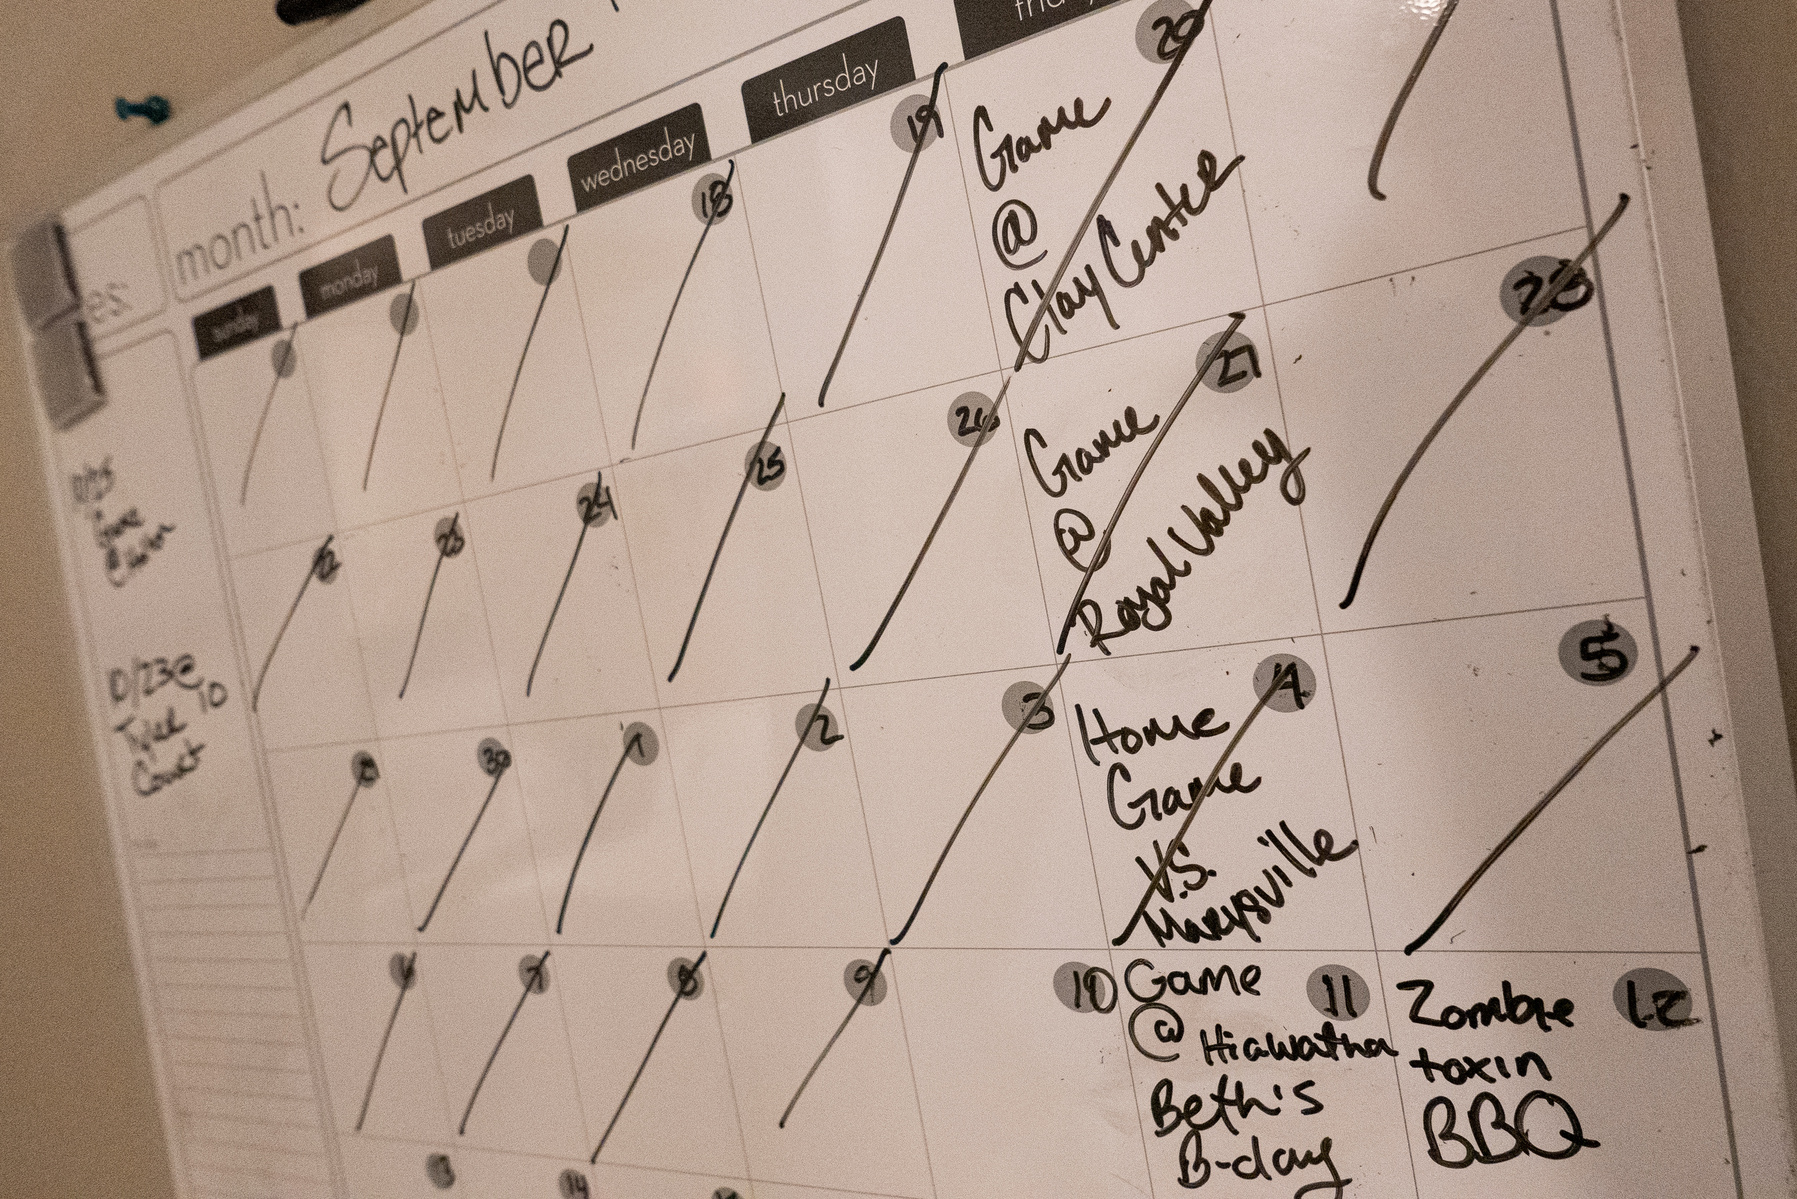 September
month:
es:
sunday monday tuesday wednesday thursday
18 19 20
Game
@
Clay Center
24 25 26 27 28
Game
@
Royal Valley
30 1 2 3 4 5
Home
Game
V.S.
Marysville
6 7 8 9 10 11 12
Game
@ Hiawatha
Beth's
B-day
Zombie
toxin
BBQ
13 14
Game
10/23@
10
Court